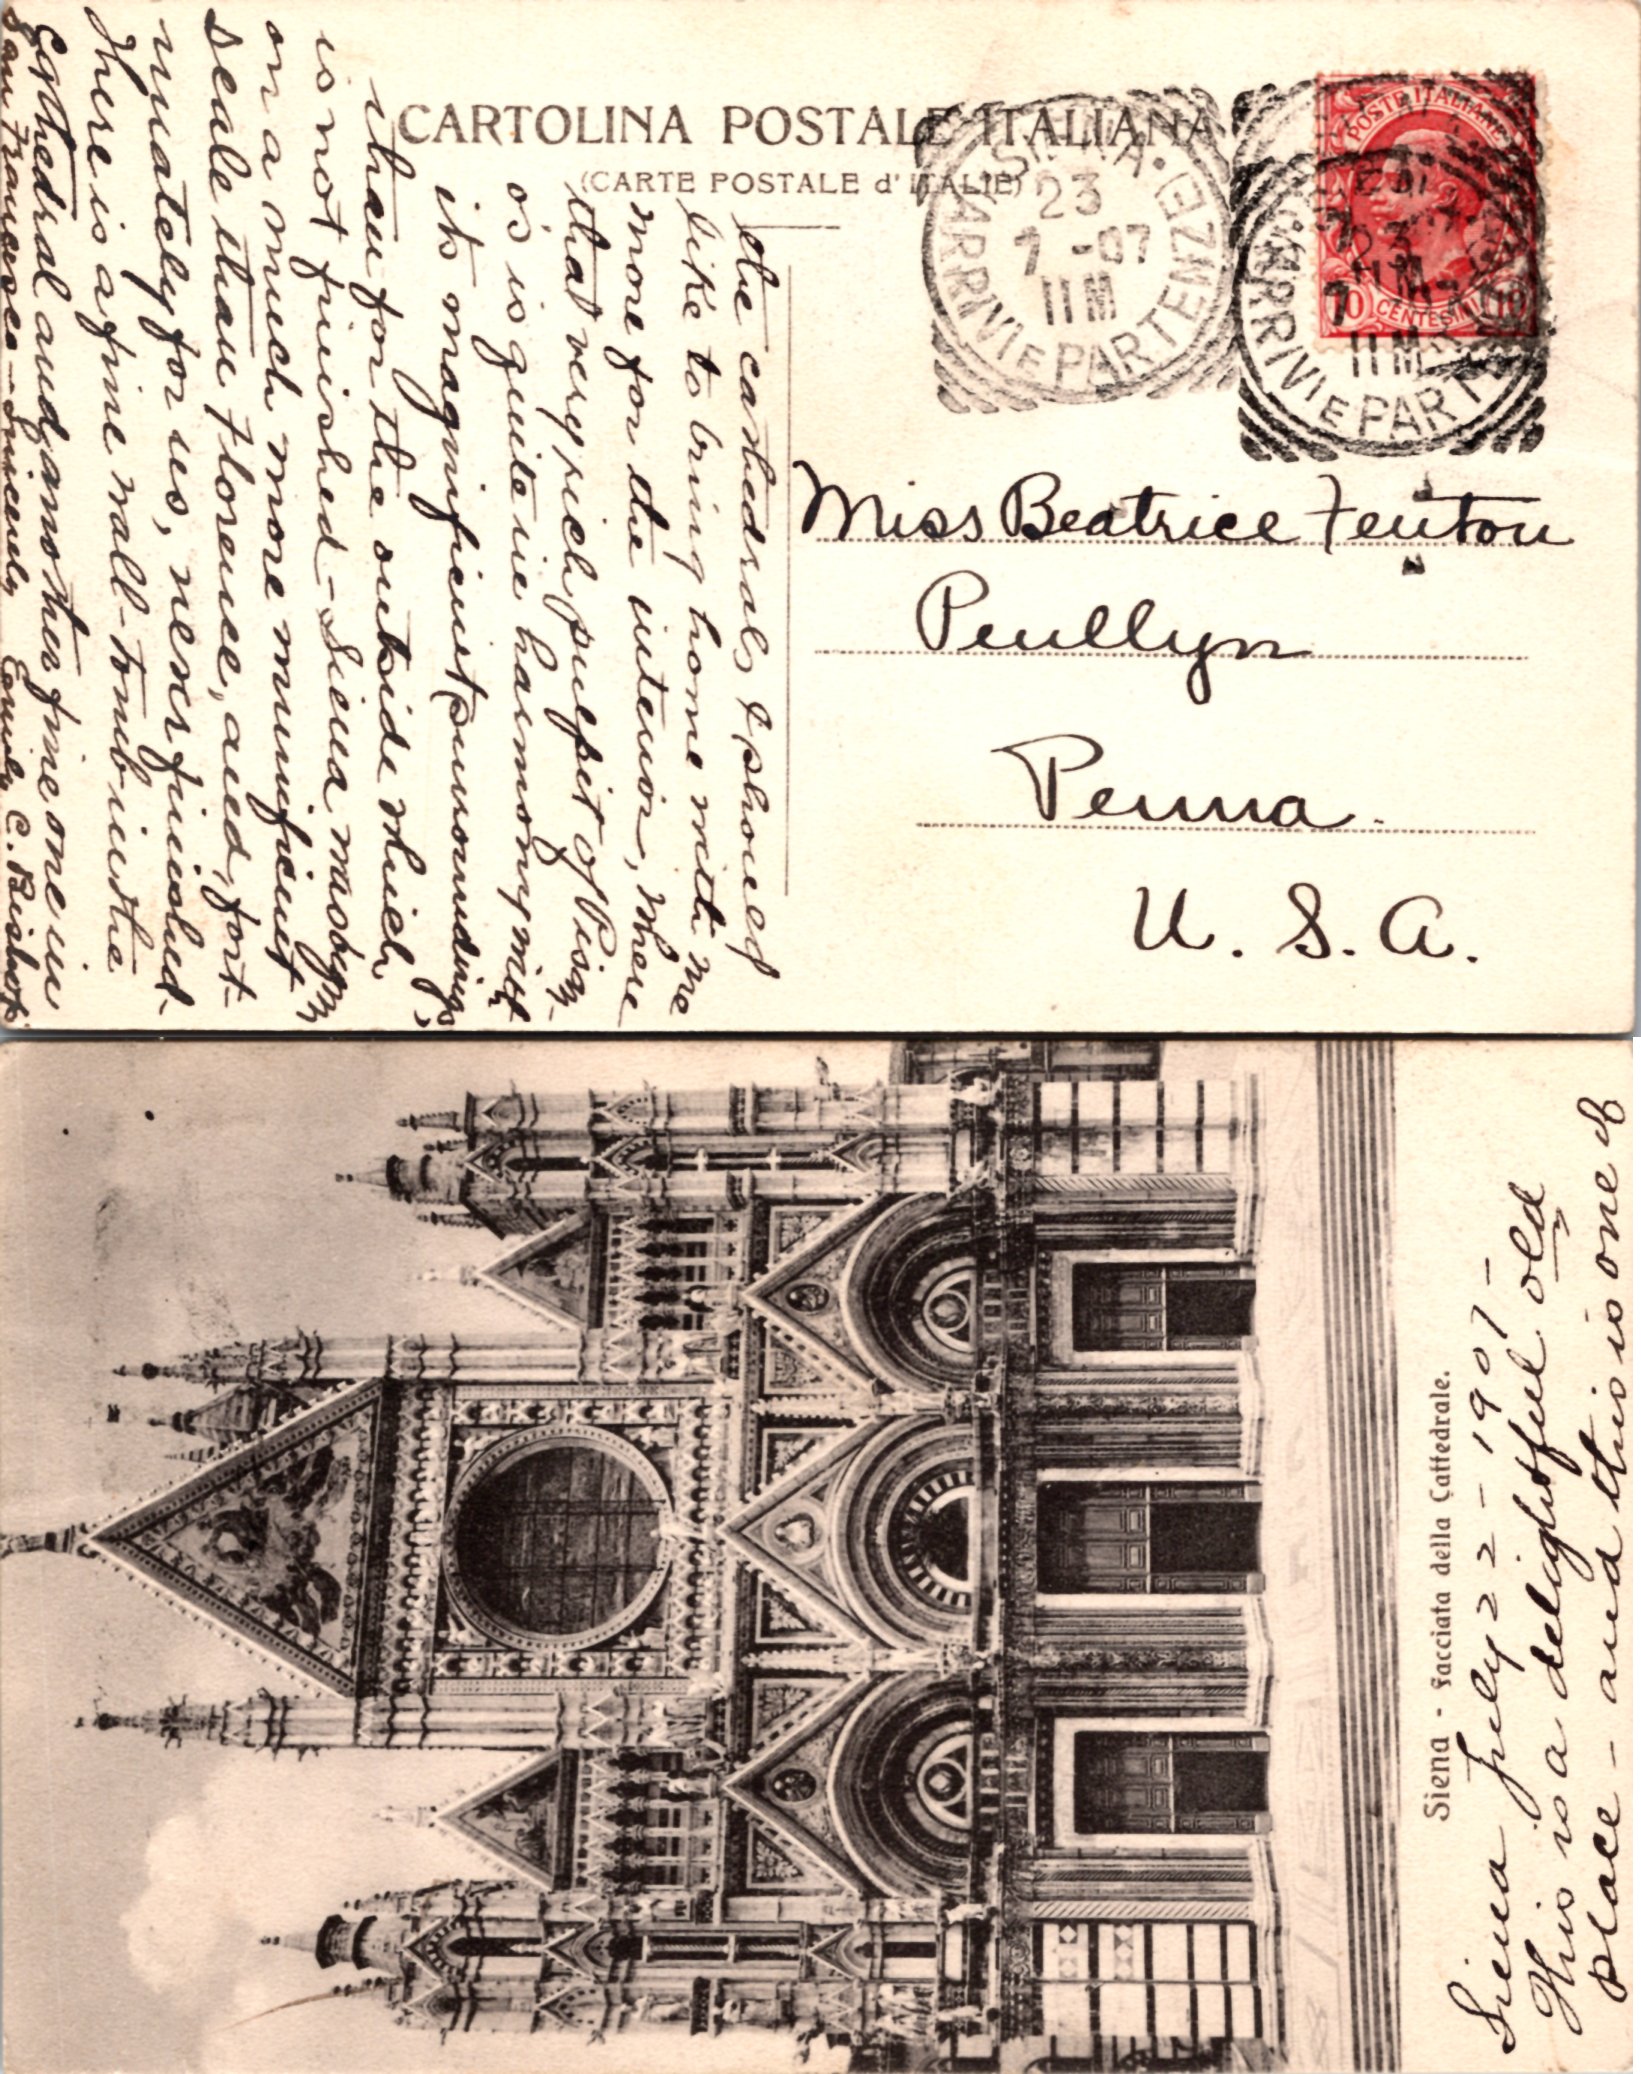 CARTOLINA POSTALE ITALIANA
(CARTE POSTALE d'ITALIE)
SIENA
ARRIVI E PARTENZE
23
7 -07
11M
POSTE ITALIANE
10 CENTESIMI 10
ARRIVI E PARTENZE
23
7
11M
Miss Beatrice Fenton
Penllyn
Penna.
U. S. A.
the cathedrals I should
like to bring home with me
more for the interior, where
that very rich pulpit of Pisan-
o's is quite in harmony with
its magnificent surroundings,
than for the outside which
is not finished - Siena was
on a much more munificent
scale than Florence, and, fort-
unately for us, never finished -
There is a fine wall-tomb in the
Cathedral and another fine one in
San Francesco - Sincerely Emily C. Bishop.
Siena - Facciata della Cattedrale.
Siena July 22 - 1907 -
This is a delightful old
place - and this is one of